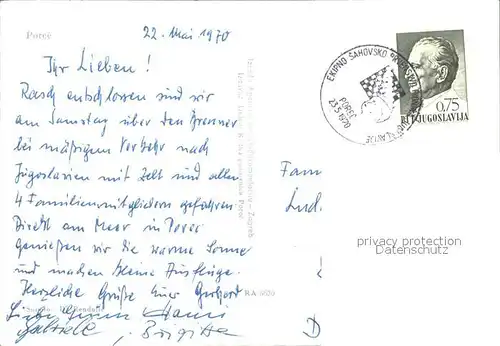 Poreč
22. Mai 1970
Ihr Lieben!
Rasch entschlossen sind wir
am Samstag über den Brenner
bei mäßigem Verkehr nach
Jugoslavien mit Zelt und allen
4 Familienmitgliedern gefahren.
Direkt am Meer in Porec
genießen wir die warme Sonne
und machen kleine Ausflüge.
Herzliche Grüße Euer Gerhard
Liebe Hanni
Gabriele, Brigitte
RA 5020
EKIPNO ŠAHOVSKO PRVENSTVO
POREČ
23.5.1970
0,75
JUGOSLAVIJA
Fam
Lud
D
privacy protection
Datenschutz